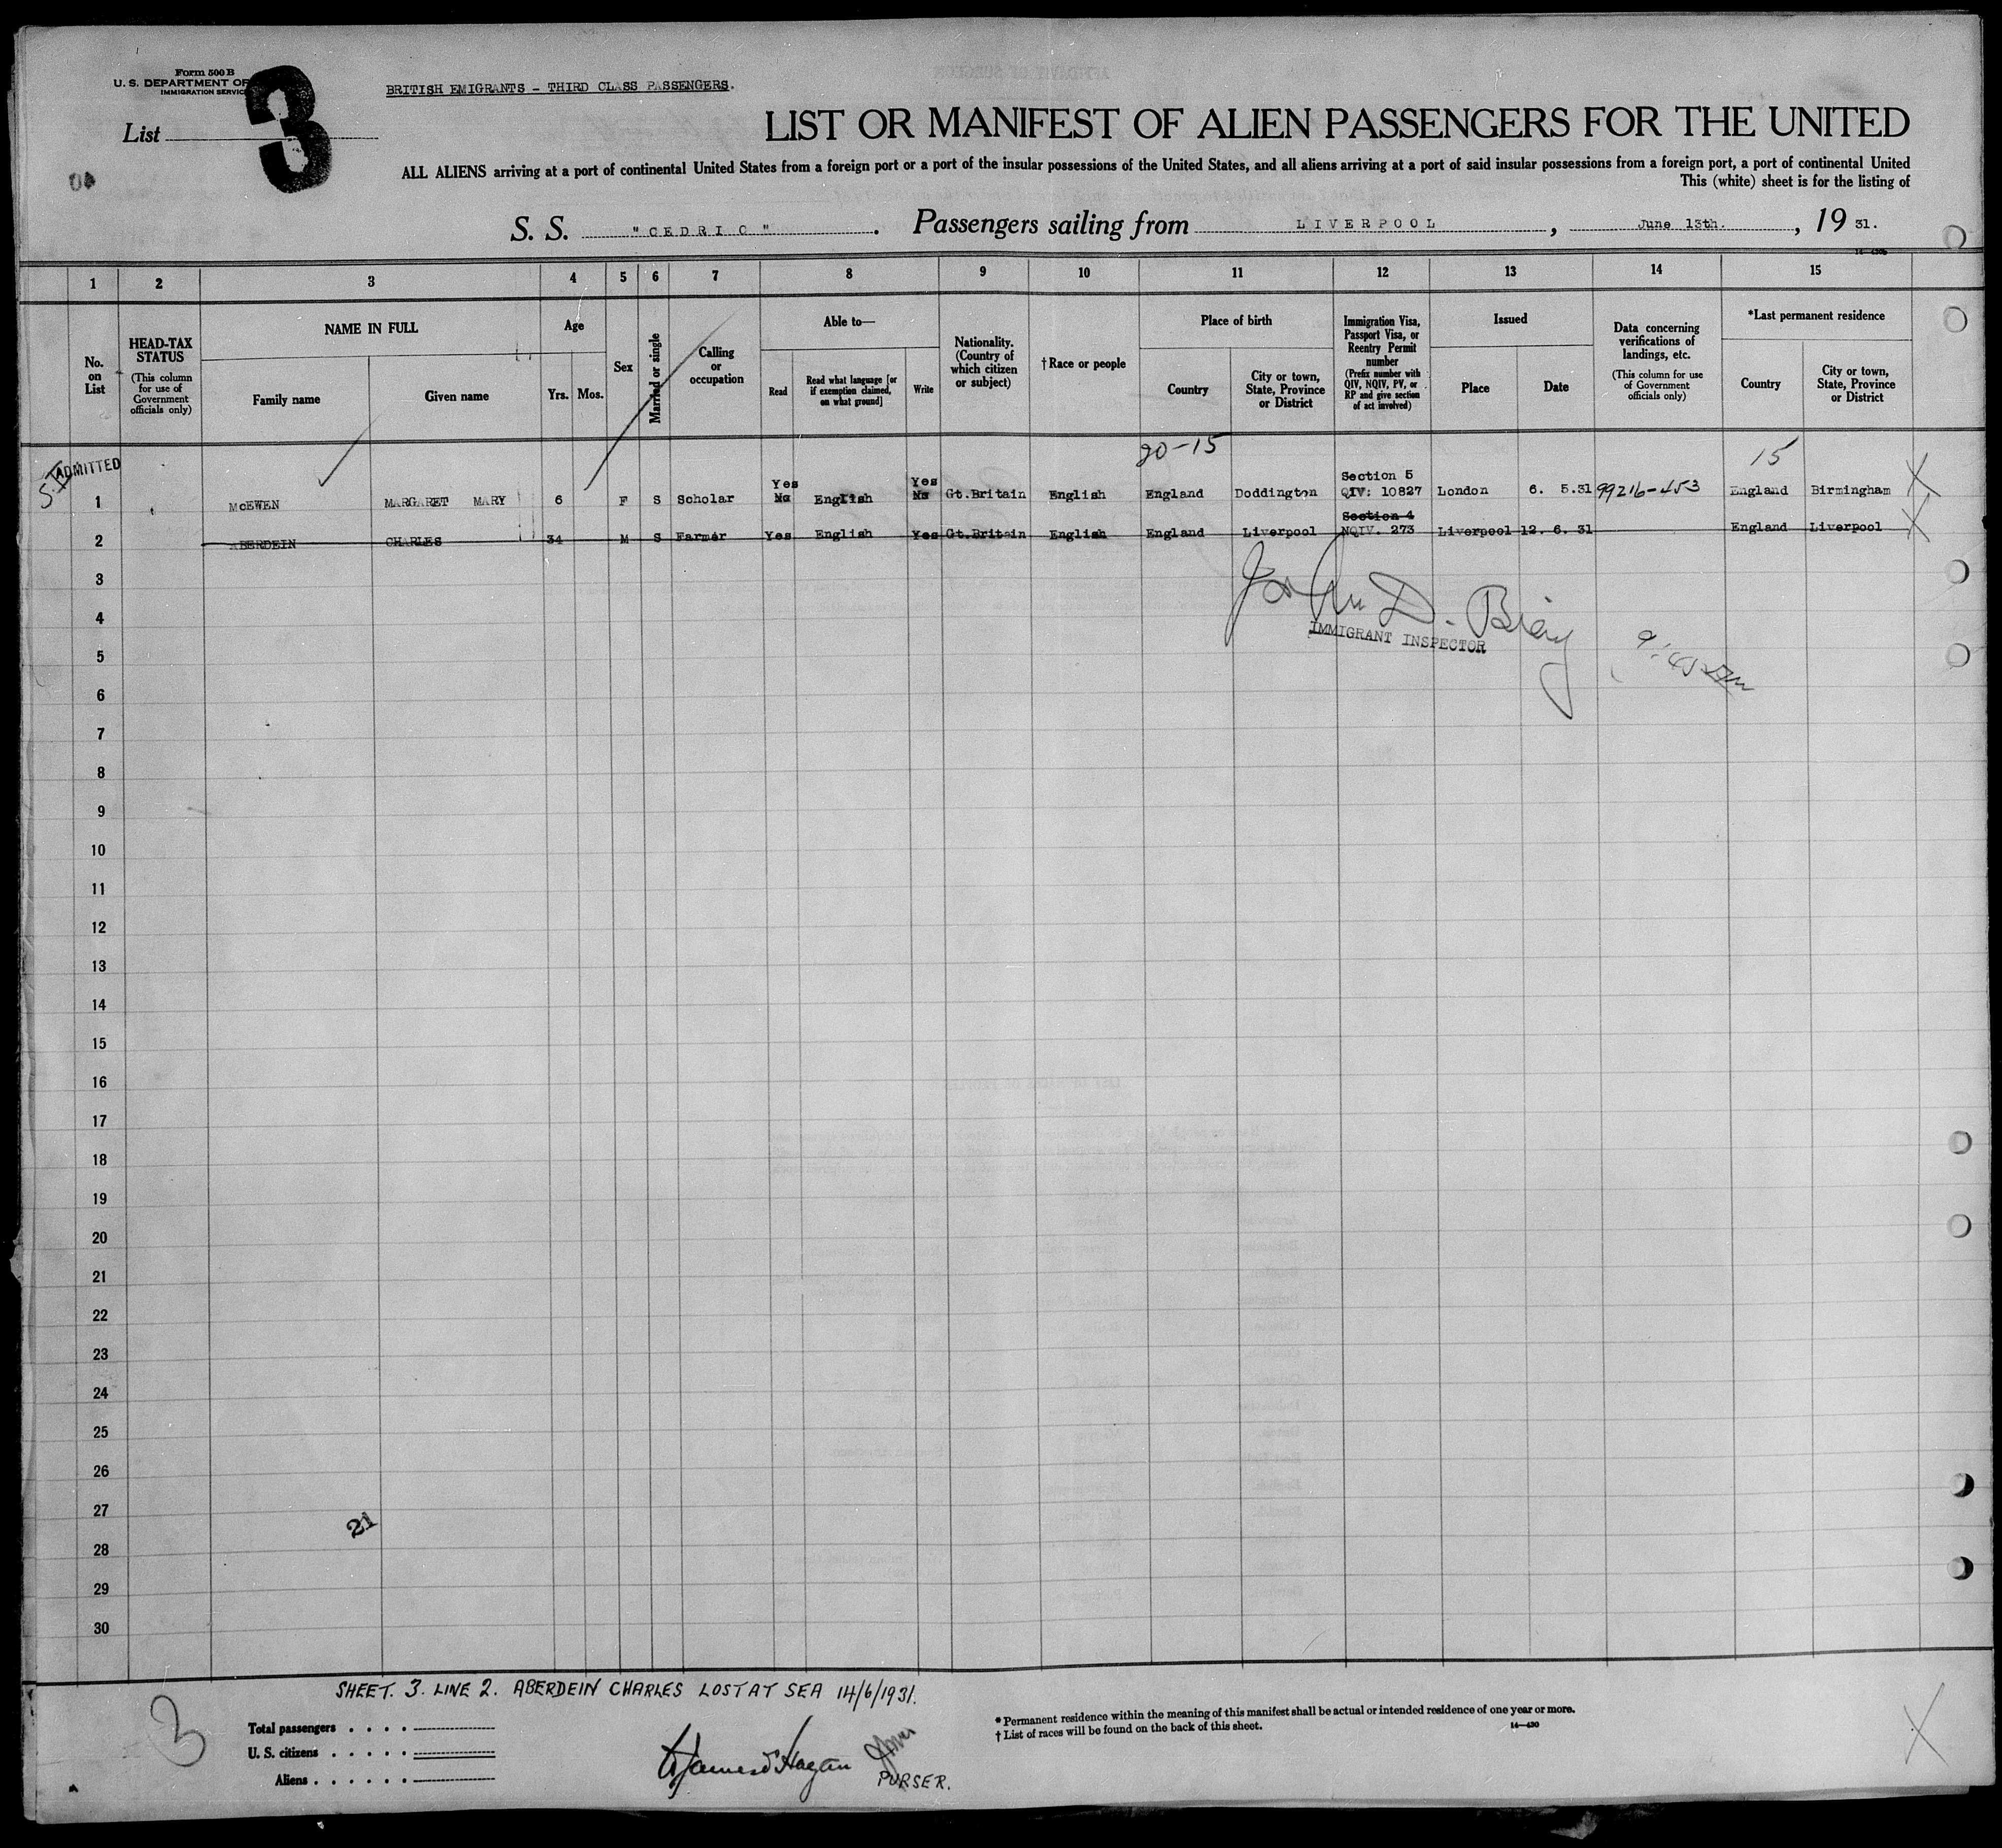 Form 500 B
U. S. DEPARTMENT OF
IMMIGRATION SERVICE
BRITISH EMIGRANTS - THIRD CLASS PASSENGERS.
List 3
LIST OR MANIFEST OF ALIEN PASSENGERS FOR THE UNITED
ALL ALIENS arriving at a port of continental United States from a foreign port or a port of the insular possessions of the United States, and all aliens arriving at a port of said insular possessions from a foreign port, a port of continental United
This (white) sheet is for the listing of
S. S. "CEDRIC". Passengers sailing from LIVERPOOL, June 13th., 19 31.
1 2 3 4 5 6 7 8 9 10 11 12 13 14 15
No. on List
HEAD-TAX STATUS
(This column for use of Government officials only)
NAME IN FULL
Family name
Given name
Age
Yrs. Mos.
Sex
Married or single
Calling or occupation
Able to—
Read
Read what language [or if exemption claimed, on what ground]
Write
Nationality. (Country of which citizen or subject)
†Race or people
Place of birth
Country
City or town, State, Province or District
Immigration Visa, Passport Visa, or Reentry Permit number
(Prefix number with QIV, NQIV, PV, or RP and give section of act involved)
Issued
Place
Date
Data concerning verifications of landings, etc.
(This column for use of Government officials only)
*Last permanent residence
Country
City or town, State, Province or District
20-15
15
ADMITTED
Yes Yes Section 5
1 McEWEN MARGARET MARY 6 F S Scholar No English No Gt.Britain English England Doddington QIV: 10827 London 6. 5.31 99216-453 England Birmingham X
Section 4
2 ABERDEIN CHARLES 34 M S Farmer Yes English Yes Gt.Britain English England Liverpool NQIV. 273 Liverpool 12. 6. 31 England Liverpool X
3
4
IMMIGRANT INSPECTOR
5
6
7
8
9
10
11
12
13
14
15
16
17
18
19
20
21
22
23
24
25
26
27
21
28
29
30
SHEET. 3. LINE 2. ABERDEIN CHARLES LOST AT SEA 14/6/1931.
3
Total passengers . . . .
U. S. citizens . . . . .
Aliens . . . . . .
PURSER.
* Permanent residence within the meaning of this manifest shall be actual or intended residence of one year or more.
† List of races will be found on the back of this sheet.
14—430
X